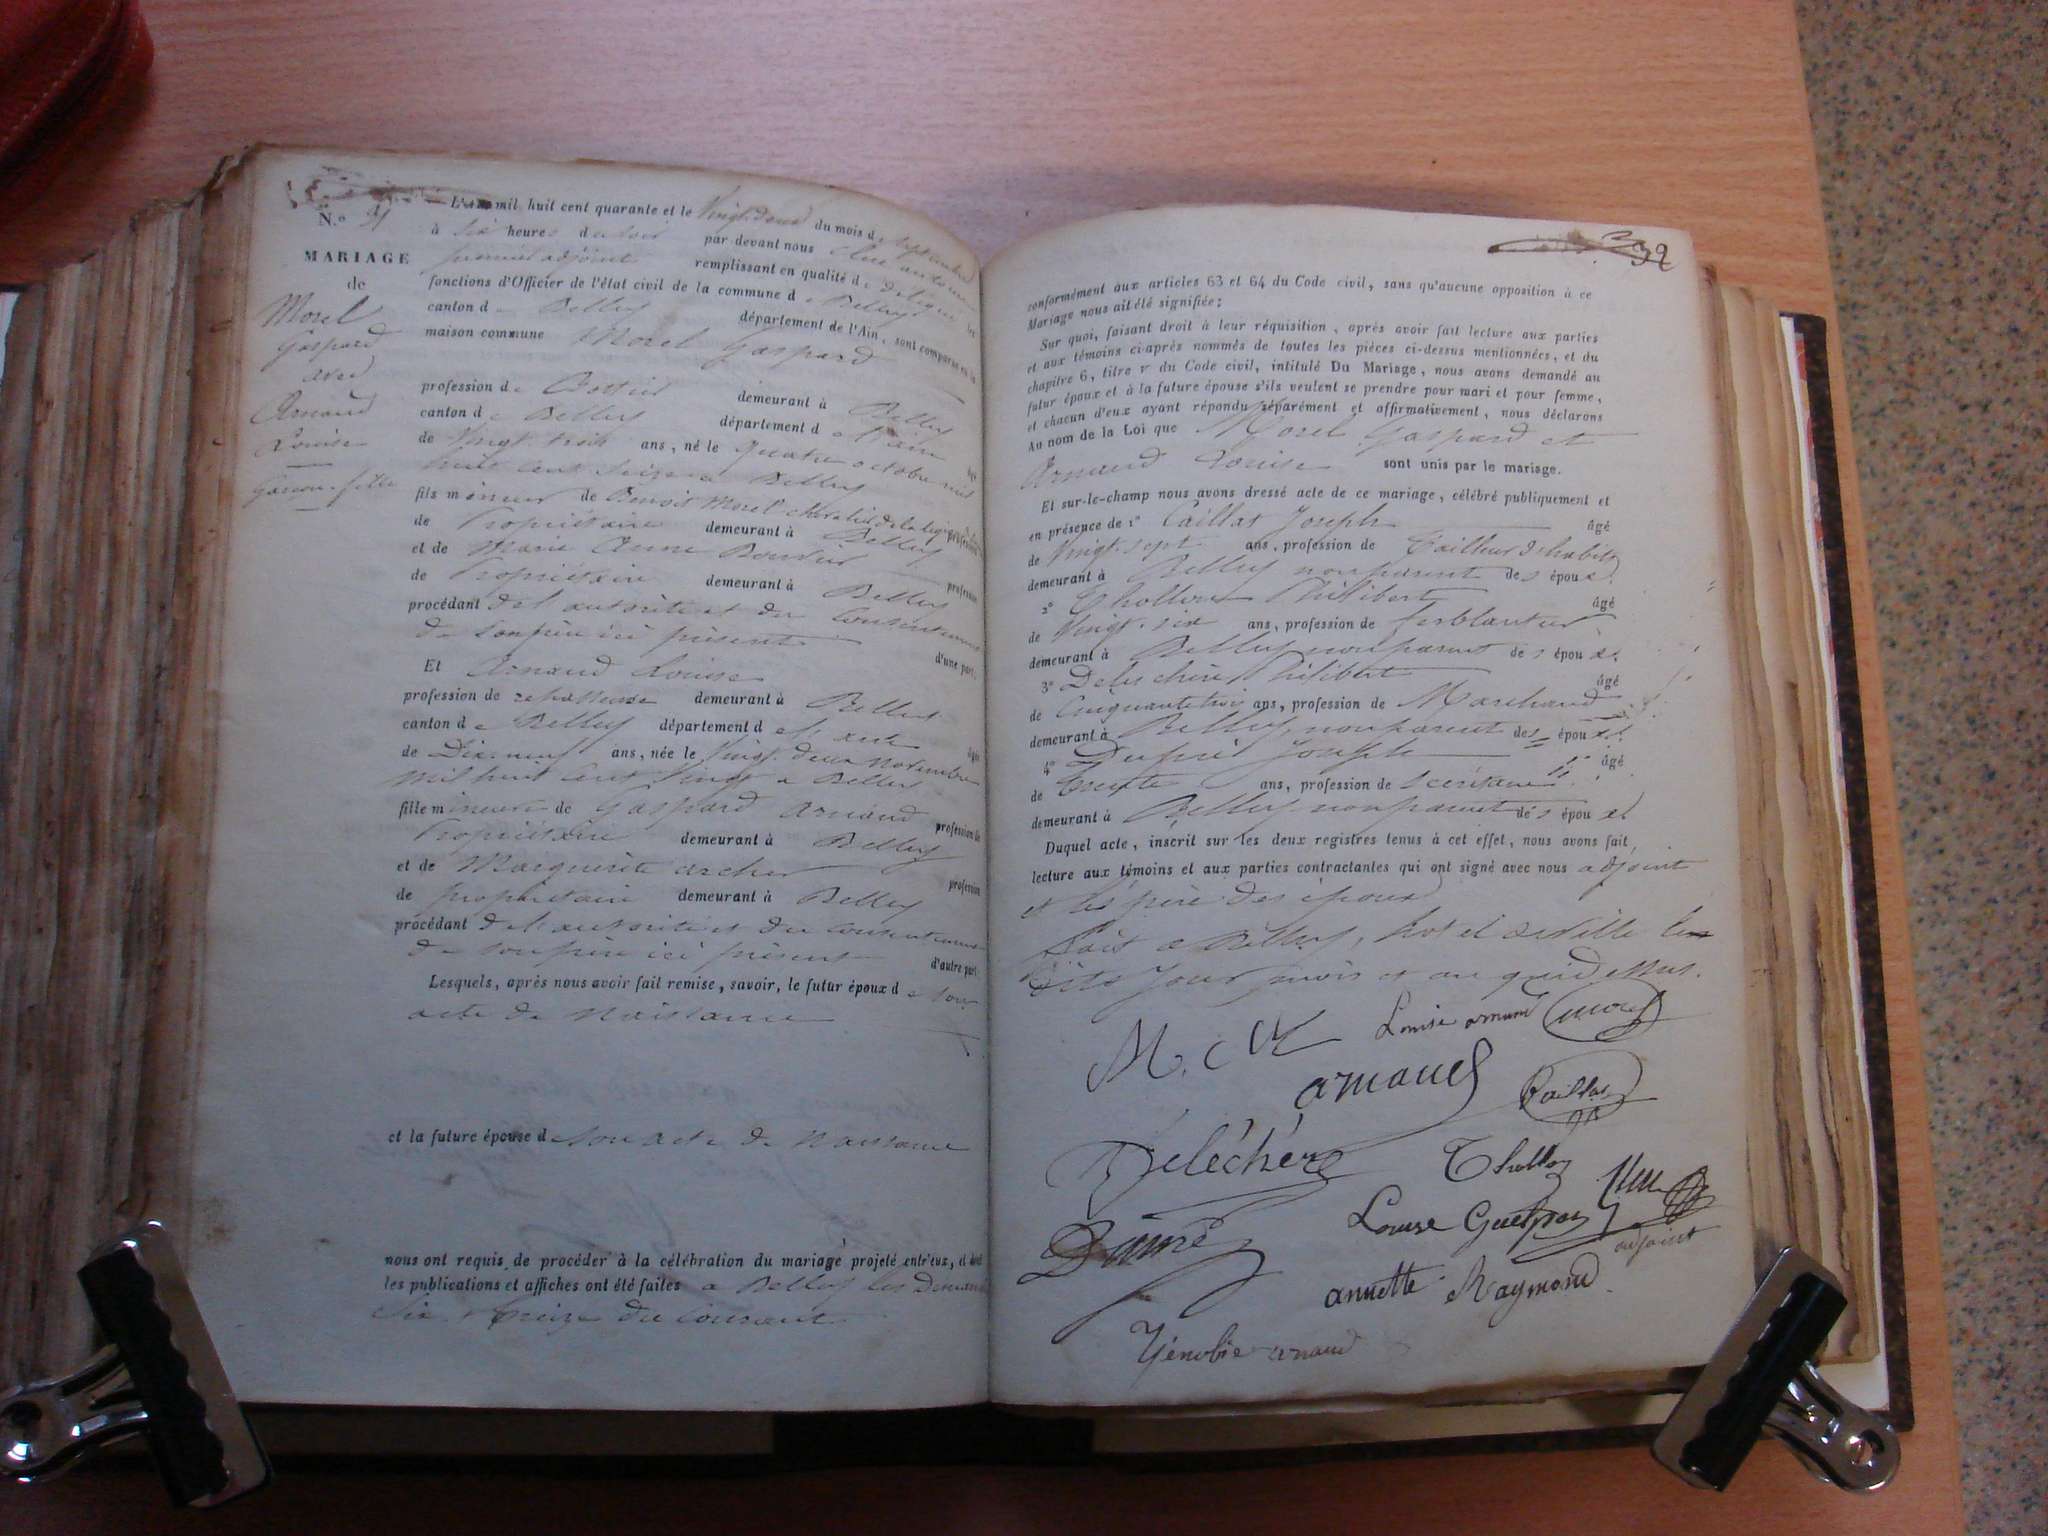 N.º 21
MARIAGE
de
Morel
Gaspard
avec
Arnaud
Louise
Garçon fille
L'an mil huit cent quarante et le Vingt deux du mois de septembre
à six heures du soir par devant nous
premier adjoint remplissant en qualité de délégué les
fonctions d'Officier de l'état civil de la commune de Belley
canton de Belley département de l'Ain, sont comparus en la
maison commune Morel Gaspard
profession de Bottier demeurant à Belley
canton de Belley département de l'ain âgé
de Vingt trois ans, né le quatre octobre mil
huit cent seize à Belley
fils mineur de Benoit Morel profession
de Propriétaire demeurant à Belley
et de Marie Anne profession
de Propriétaire demeurant à Belley
procédant de l'autorité et du Consentement
de son père ici présent d'une part.
Et Arnaud Louise
profession de repasseuse demeurant à Belley
canton de Belley département de l'ain âgée
de Dix-neuf ans, née le Vingt deux Novembre
mil huit cent Vingt à Belley
fille mineure de Gaspard Arnaud profession de
Propriétaire demeurant à Belley
et de Marguerite archer profession
de propriétaire demeurant à Belley
procédant de l'autorité et du Consentement
de son père ici présent d'autre part.
Lesquels, après nous avoir fait remise, savoir, le futur époux de son
acte de Naissance
et la future épouse de son acte de Naissance
nous ont requis de procéder à la célébration du mariage projeté entr'eux, et dont
les publications et affiches ont été faites à Belley les Dimanches
Six & treize du Courant
32
conformément aux articles 63 et 64 du Code civil, sans qu'aucune opposition à ce
Mariage nous ait été signifiée;
Sur quoi, faisant droit à leur réquisition, après avoir fait lecture aux parties
et aux témoins ci-après nommés de toutes les pièces ci-dessus mentionnées, et du
chapitre 6, titre v du Code civil, intitulé Du Mariage, nous avons demandé au
futur époux et à la future épouse s'ils veulent se prendre pour mari et pour femme,
et chacun d'eux ayant répondu séparément et affirmativement, nous déclarons
Au nom de la Loi que Morel Gaspard et
Arnaud Louise sont unis par le mariage.
Et sur-le-champ nous avons dressé acte de ce mariage, célébré publiquement et
en présence de 1º Caillat Joseph âgé
de Vingt sept ans, profession de tailleur d'habits
demeurant à Belley non parent des époux.
2º Thollon Philibert âgé
de Vingt six ans, profession de ferblantier
demeurant à Belley non parent des époux.
3º Philibert âgé
de Cinquante trois ans, profession de Marchand
demeurant à Belley, non parent des époux.
4º Joseph âgé
de Trente ans, profession de
demeurant à Belley non parent des époux
Duquel acte, inscrit sur les deux registres tenus à cet effet, nous avons fait
lecture aux témoins et aux parties contractantes qui ont signé avec nous adjoint
et les père des époux
Fait à Belley, hotel de Ville les
dits jour mois et an que dessus.
Louise arnaud Morel
arnaud Caillat
Deléchère Thollon
Louise adjoint
annette Raymond
Zénobie arnaud